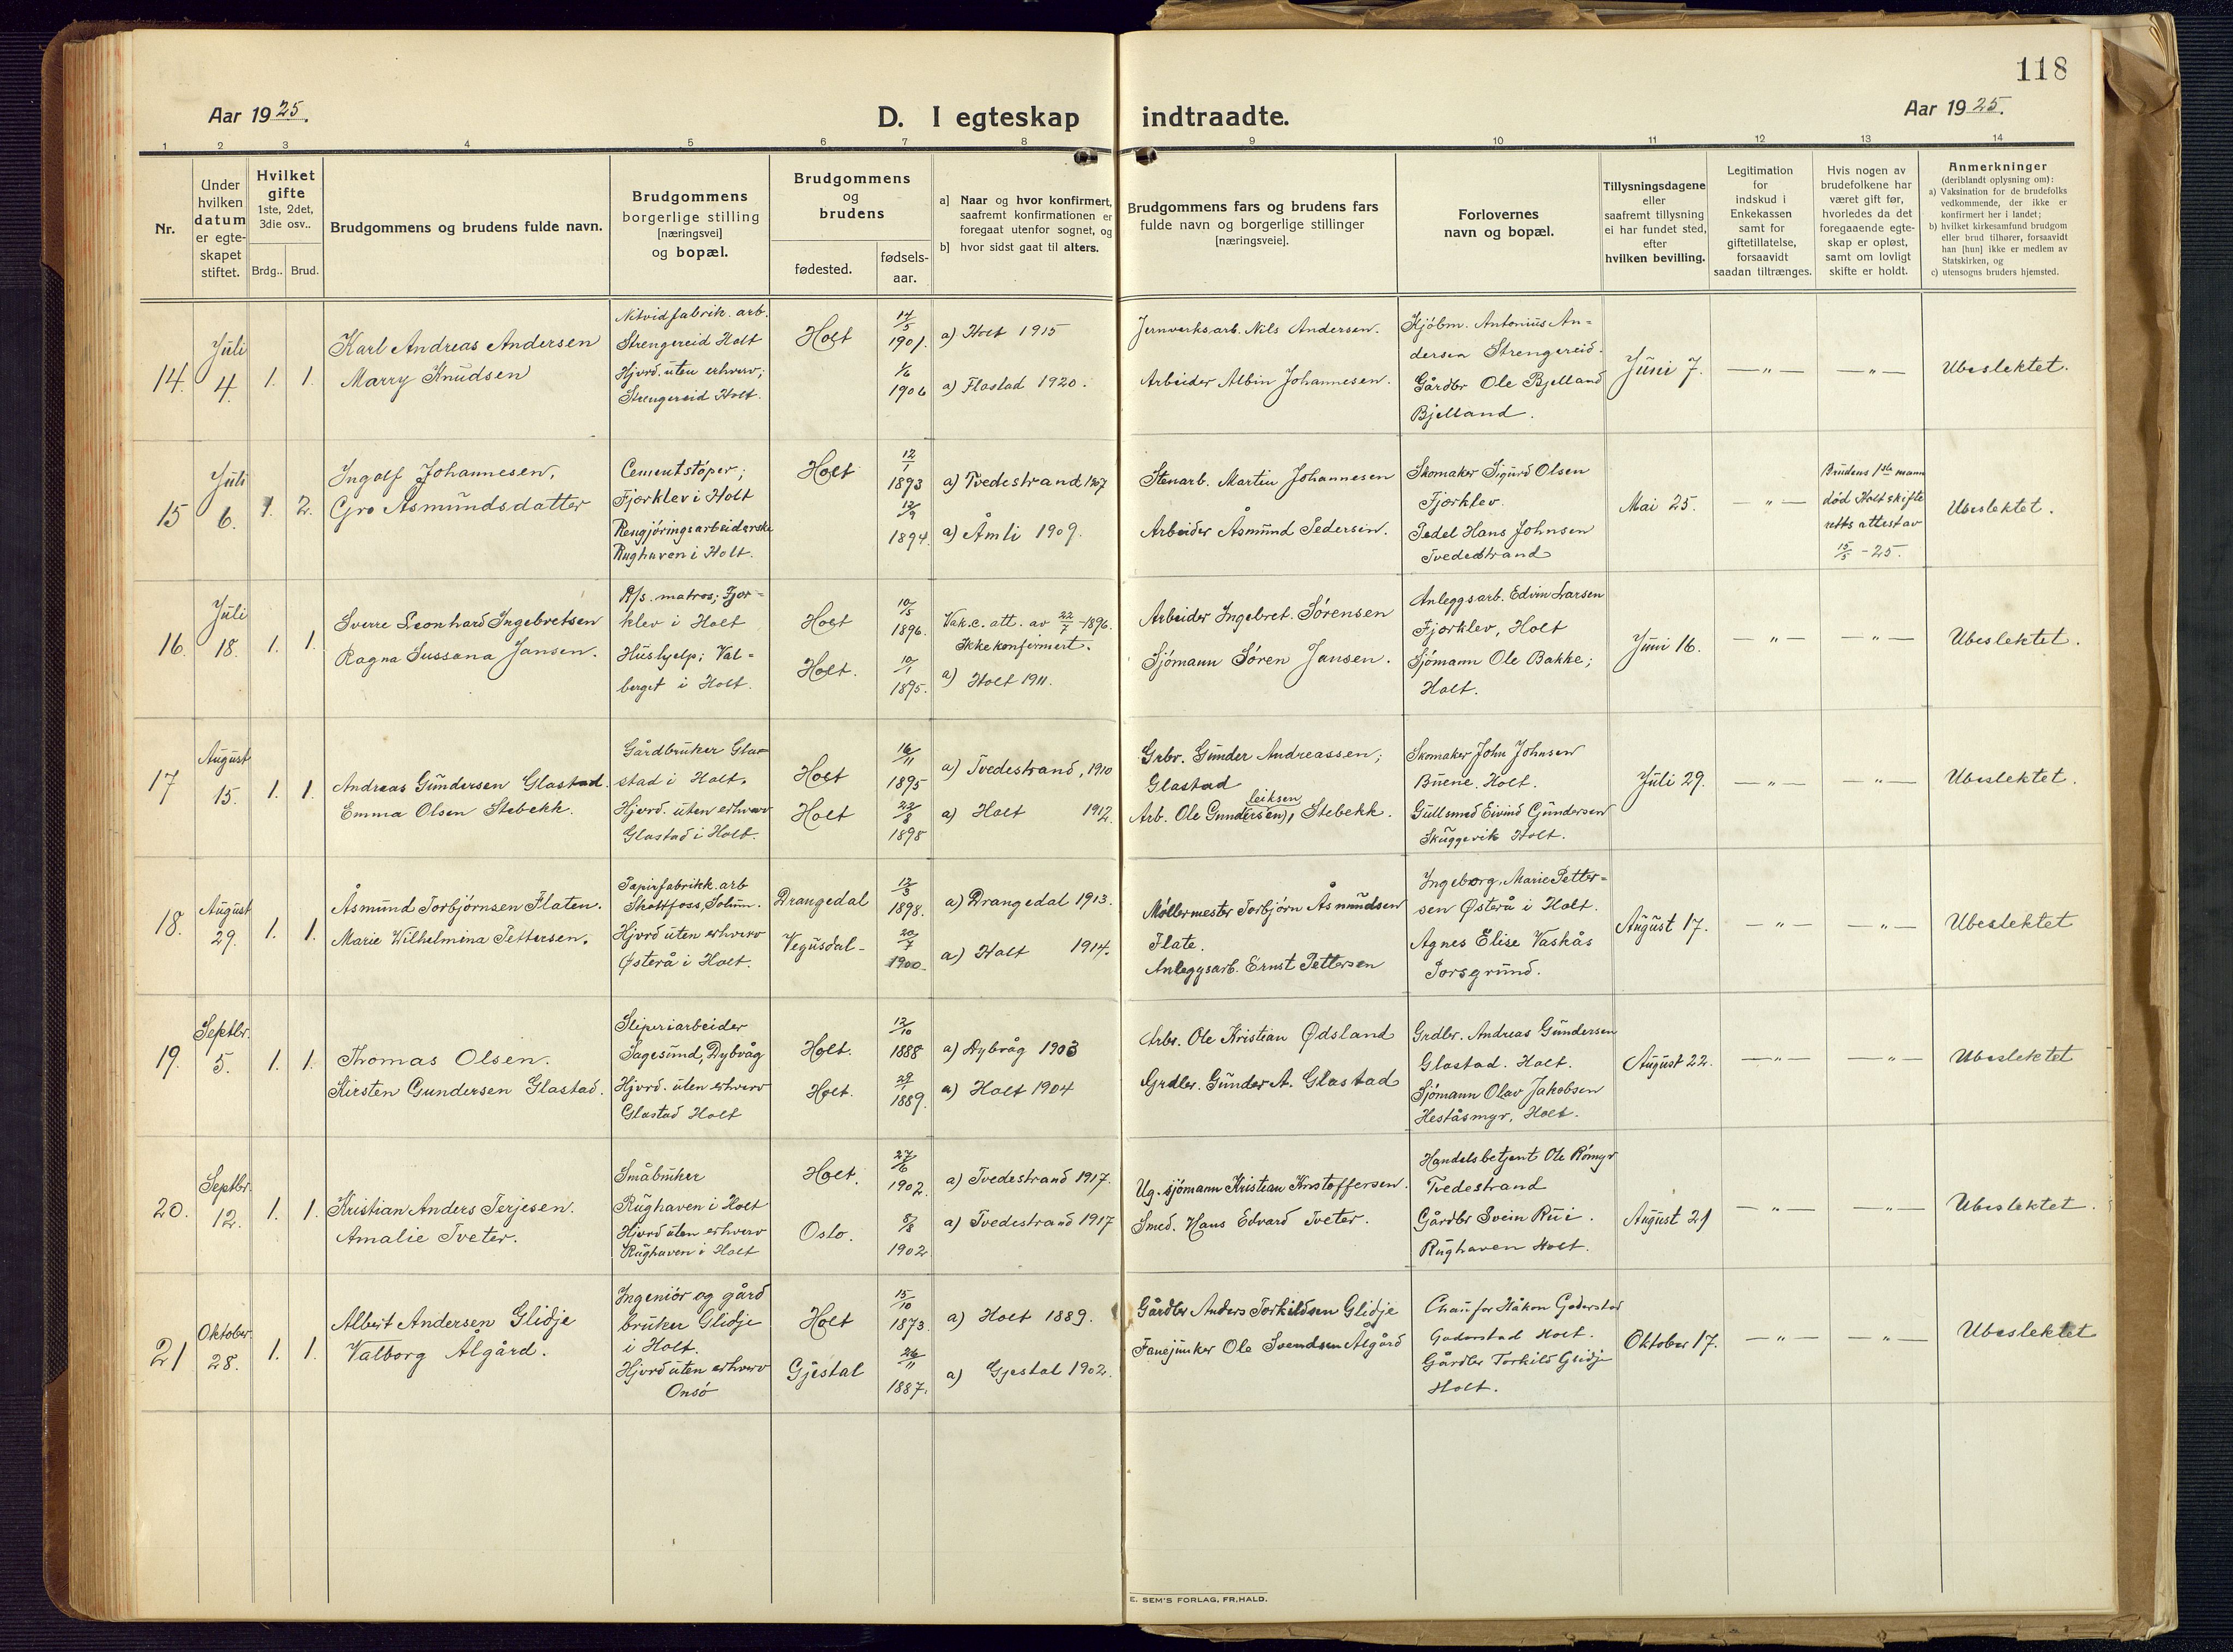 118
Aar 1925.
D. I egteskap indtraadte.
Aar 1925.
1 2 3 4 5 6 7 8 9 10 11 12 13 14
Nr.
Under
hvilken
datum
er egte-
skapet
stiftet.
Hvilket
gifte
1ste, 2det,
3die osv..
Brdg.. Brud.
Brudgommens og brudens fulde navn.
Brudgommens
borgerlige stilling
[næringsvei]
og bopæl.
Brudgommens
og
brudens
fødested.
fødsels-
aar.
a] Naar og hvor konfirmert,
saafremt konfirmationen er
foregaat utenfor sognet, og
b] hvor sidst gaat til alters.
Brudgommens fars og brudens fars
fulde navn og borgerlige stillinger
[næringsveie].
Forlovernes
navn og bopæl.
Tillysningsdagene
eller
saafremt tillysning
ei har fundet sted,
efter
hvilken bevilling.
Legitimation
for
indskud i
Enkekassen
samt for
giftetillatelse,
forsaavidt
saadan tiltrænges.
Hvis nogen av
brudefolkene har
været gift før,
hvorledes da det
foregaaende egte-
skap er opløst,
samt om lovligt
skifte er holdt.
Anmerkninger
(deriblandt oplysning om):
a) Vaksination for de brudefolks
vedkommende, der ikke er
konfirmert her i landet;
b) hvilket kirkesamfund brudgom
eller brud tilhører, forsaavidt
han [hun] ikke er medlem av
Statskirken, og
c) utensogns bruders hjemsted.
14.
Juli
4.
1. 1.
Karl Andreas Andersen
Marry Knudsen
Nitvidfabrik. arb.
Strengereid Holt
Hjvrd. uten erhverv;
Strengereid Holt.
Holt
14/5
1901.
1/6
1906
a) Holt 1915
a) Flostad 1920.
Jernverksarb. Nils Andersen.
Arbeider Albin Johannesen.
Kjöbm. Antonius An=
dersen Strengereid.
Gårdbr Ole Bjelland
Bjelland.
Juni 7.
— „ —
— „ —
Ubeslektet.
15
Juli
6.
1. 2.
Ingolf Johannesen.
Gro Asmundsdatter
Cementstøper;
Fjærklev i Holt
Rengjøringsarbeiderske
Rughaven i Holt.
Holt
12/1
1893
12/9
1894.
a) Tvedestrand 1907
a) Åmli 1909.
Stenarb. Martin Johannesen
Arbeider Åsmund Pedersen.
Skomaker Sigurd Olsen
Fjærklev.
Pedel Hans Johnsen
Tvedestrand
Mai 25.
— „ —
Brudens 1ste mann
død Holt skifte
retts attest av
15/5 - 25.
Ubeslektet.
16.
Juli
18.
1. 1.
Sverre Leonhard Ingebretsen
Ragna Sussana Jansen.
R/s. matros; Fjær=
klev i Holt
Hushjelp; Val=
berget i Holt.
Holt
Holt.
10/5
1896.
10/1
1895.
Vak.c. att. av 22/7 -1896.
Ikke konfirmert.
a) Holt 1911.
Arbeider Ingebret. Sørensen
Sjømann Søren Jansen.
Anleggsarb. Edvin Larsen
Fjærklev, Holt
Sjømann Ole Bakke;
Holt.
Juni 16.
— „ —
— „ —
Ubeslektet.
17
August
15.
1. 1.
Andreas Gundersen Glastad.
Emma Olsen Stebekk.
Gårdbruker Gla=
stad i Holt.
Hjvrd. uten erhverv
Glastad i Holt.
Holt
Holt
16/11
1895
22/8
1898
a) Tvedestrand, 1910
a) Holt 1912.
Grbr. Gunder Andreassen;
Glastad
leiksen
Arb. Ole Gundersen), Stebekk.
Skomaker John Johnsen
Buene. Holt.
Gullsmed Eivind Gundersen
Skuggevik Holt.
Juli 29.
— „ —
— „ —
Ubeslektet.
18.
August
29.
1. 1.
Åsmund Torbjørnsen Flaten.
Marie Wilhelmina Pettersen.
Papirfabrikk. arb
Skotfoss, Solum.
Hjvrd uten erhverv
Østerå i Holt.
Drangedal
Vegusdal-
12/3
1898.
20/7
1900.
a) Drangedal 1913.
a) Holt 1914.
Møllermester Torbjörn Åsmundsen
Flate.
Anleggsarb. Ernst Pettersen
Ingeborg. Marie Petter=
sen Østerå i Holt.
Agnes Elise Vaskås
Porsgrund.
August 17.
— „ —
— „ —
Ubeslektet
19.
Septbr.
5.
1. 1.
Thomas Olsen.
Kirsten Gundersen Glastad.
Sliperiarbeider
Sagesund, Dybvåg
Hjvrd. uten erhverv
Glastad Holt
Holt.
Holt.
12/10
1888
29/1
1889.
a) Dybvåg 1903
a) Holt 1904
Arbr. Ole Kristian Ødsland
Grdbr. Gunder A. Glastad
Grdbr. Andreas Gundersen
Glastad. Holt.
Sjømann Olav Jakobsen
Heståsmyr, Holt.
August 22.
— „ —
— „ —
Ubeslektet
20.
Septbr.
12.
1. 1.
Kristian Anders Terjesen.
Amalie Tveter.
Småbruker
Rughaven i Holt
Hjvrd uten erhverv
Rughaven i Holt
Holt.
Oslo.
27/6
1902.
8/8
1902
a) Tvedestrand 1917.
a) Tvedestrand 1917
Ug. sjømann Kristian Kristoffersen.
Smed. Hans Edvard Tveter.
Handelsbetjent Ole Rømyr
Tvedestrand
Gårdbr Svein Rui.
Rughaven Holt.
August 21
— „ —
— „ —
Ubeslektet.
21
Oktober
28.
1. 1.
Albert Andersen Glidje
Valborg Ålgård.
Ingeniør og gård
bruker Glidje
i Holt.
Hjvrd uten erhverv
Onsö
Holt
Gjestal
15/10
1873.
26/11
1887.
a) Holt 1889.
a) Gjestal 1902.
Gårdbr Anders Torkildsen Glidje
Fanejunker Ole Svendsen Ålgård
Chaufør Håkon Goderstad
Goderstad Holt.
Gårdbr Torkild Glidje
Holt.
Oktober 17.
— „ —
— „ —
Ubeslektet
E. SEM'S FORLAG, FR.HALD.